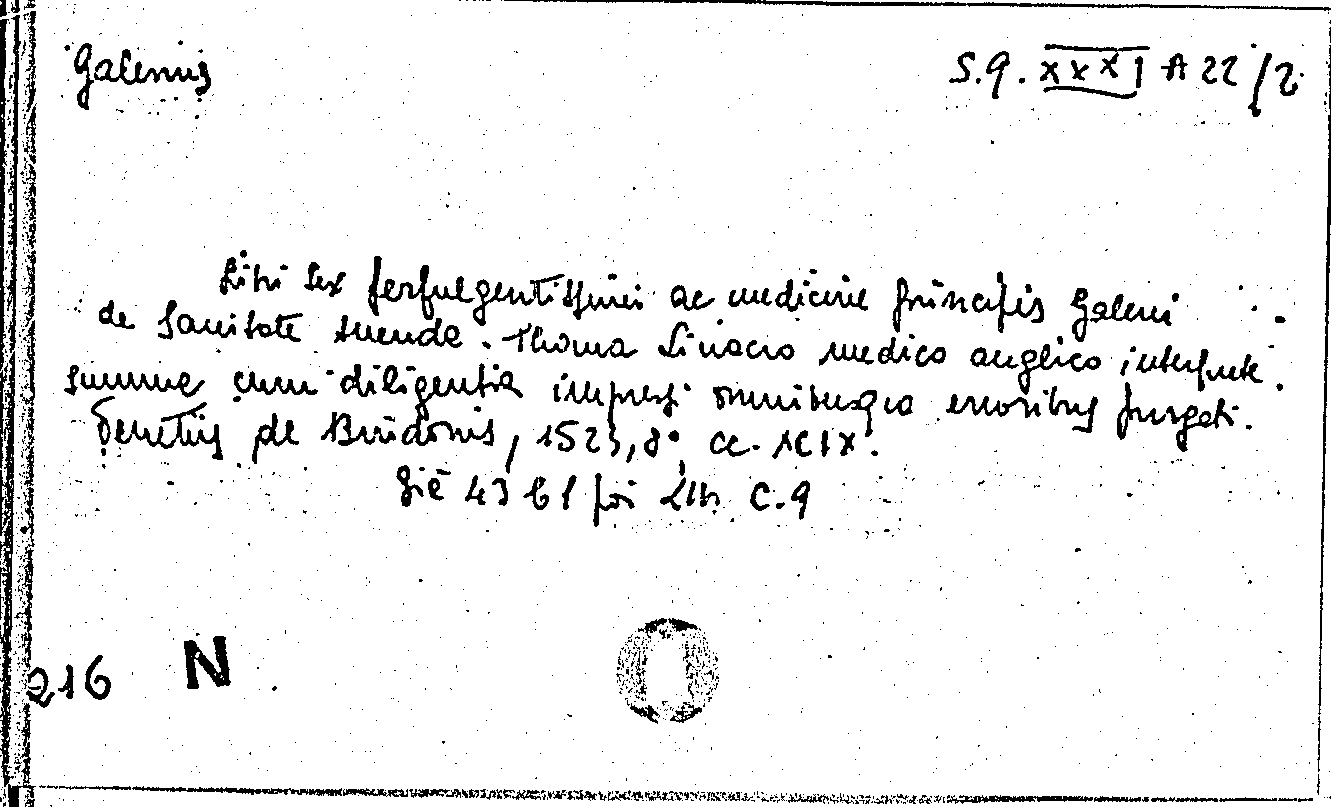 Galenus
S.q. XXXI A 22/2
Libri sex perfulgentissimi ac medicine principis Galeni
de Sanitate tuenda. Thoma Linacro medico anglico interprete.
summa cum diligentia impressi omnibusq erroribus purgati.
Venetiis de Bindonis, 1523, 8°, cc.
Già 43 61 poi C.9
216 N